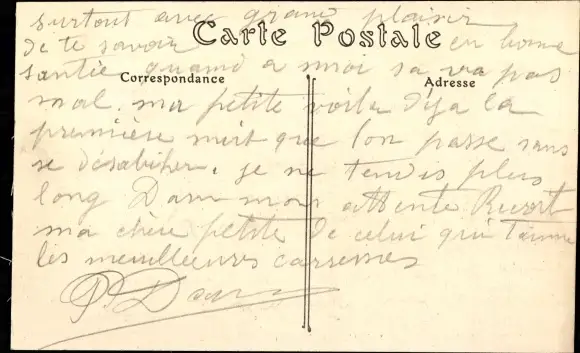 surtout avec grand plaisir
Carte Postale
de te savoir en bonne
santée quand a moi sa va pas
Correspondance
Adresse
mal. ma petite voila déja la
première nuit que l'on passe sans
se désabiller. je ne tendis plus
long Dans mon attente Recoit
ma chère petite de celui qui t'aime
les meuilleures carresses